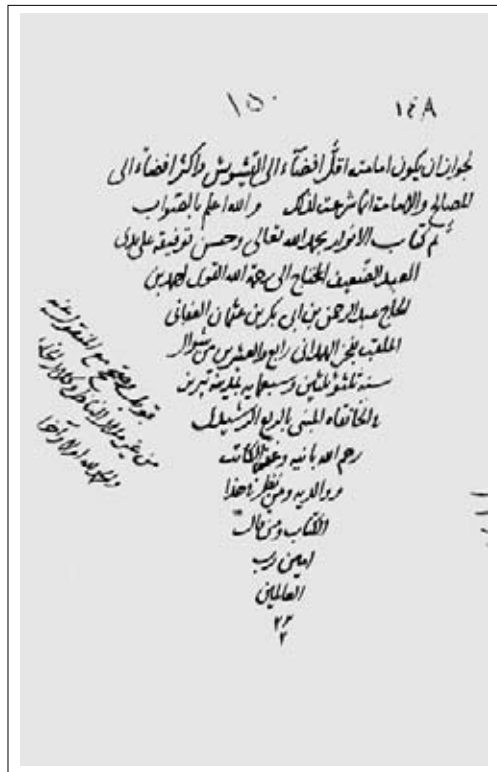 ١٥٠ ١٤٨
لجواز ان يكون امامته اقل افضاء الى التشويش واكثر افضاء الى
المصالح والامامة انما شرعت لذلك والله اعلم بالصواب
تم كتاب الانوار بحمد الله تعالى وحسن توفيقه على يدي
العبد الضعيف المحتاج الى رحمة الله القوى احمد بن
الحاج عبد الرحمن بن ابى بكر بن عثمان
الملقب بفخر الهمدانى رابع والعشرين من شوال
سنة ثلث وثلثين وسبعمايه بمدينة تبريز
فى الخانقاه المبنى بالربع الرشيدى
رحم الله بانيه وغفر لكاتبه
ووالديه ومن نظر فى هذا
الكتاب ومن قال
امين رب
العالمين
قوبل وصحح مع المنقول عنه
من غير
والحمد لله اولا وآخرا